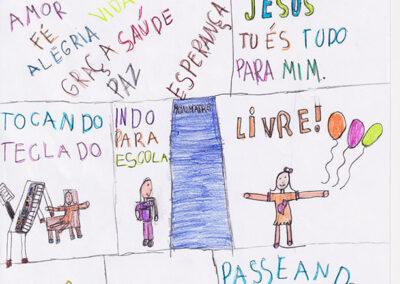 AMOR
VIDA
FÉ
ALEGRIA
GRAÇA
SAÚDE
PAZ
ESPERANÇA
JESUS
TU ÉS TUDO
PARA MIM.
TOCANDO
TECLADO
INDO
PARA
ESCOLA
LIVRE!
PASSEAND